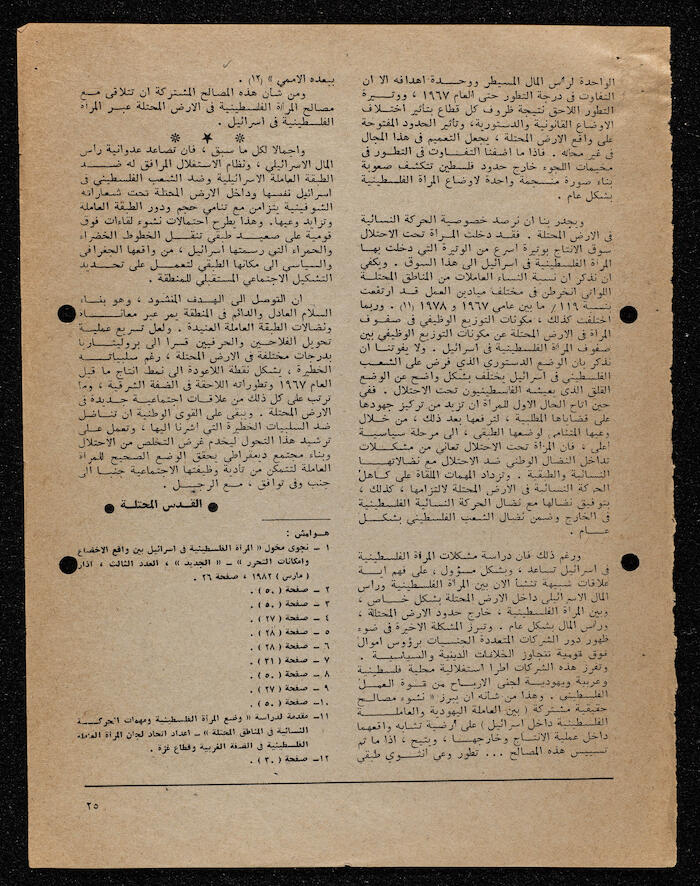 الواحدة لرأس المال المسيطر ووحدة اهدافه الا ان
التفاوت في درجة التطور حتى العام ١٩٦٧ ، ووتيرة
التطور اللاحق نتيجة ظروف كل قطاع بتأثير اختلاف
الاوضاع القانونية والدستورية، وتأثير الحدود المفتوحة
على واقع الارض المحتلة ، يجعل التعميم في هذا المجال
في غير محله . فاذا ما اضفنا التفاوت في التطور في
مخيمات اللجوء خارج حدود فلسطين تتكشف صعوبة
بناء صورة منسجمة واحدة لاوضاع المرأة الفلسطينية
بشكل عام .
ويجدر بنا ان نرصد خصوصية الحركة النسائية
في الارض المحتلة . فقد دخلت المرأة تحت الاحتلال
سوق الانتاج بوتيرة أسرع من الوتيرة التي دخلت بها
المرأة الفلسطينية في اسرائيل الى هذا السوق . ويكفي
ان نذكر ان نسبة النساء العاملات من المناطق المحتلة
اللواتي انخرطن في مختلف ميادين العمل قد ارتفعت
بنسبة ١١٩٪ ما بين عامي ١٩٦٧ و ١٩٧٨ (١١) . وربما
اختلفت كذلك ، مكونات التوزيع الوظيفي في صفوف
المرأة في الارض المحتلة عن مكونات التوزيع الوظيفي بين
صفوف المرأة الفلسطينية في اسرائيل . ولا يفوتنا ان
نذكر بان الوضع الدستوري الذي فرض على الشعب
الفلسطيني في اسرائيل يختلف بشكل واضح عن الوضع
القلق الذي يعيشه الفلسطينيون تحت الاحتلال . ففي
حين اتاح الحال الاول للمرأة ان تزيد من تركيز جهودها
على قضاياها المطلبية ، لترفعها بعد ذلك ، من خلال
وعيها المتنامي لوضعها الطبقي ، الى مرحلة سياسية
أعلى ، فان المرأة تحت الاحتلال تعاني من مشكلات
تداخل النضال الوطني ضد الاحتلال مع نضالاتها
النسائية والطبقية . وتزداد المهمات الملقاة على كاهل
الحركة النسائية في الارض المحتلة لالتزامها ، كذلك ،
بتوفيق نضالها مع نضال الحركة النسائية الفلسطينية
في الخارج وضمن نضال الشعب الفلسطيني بشكل
عام .
ورغم ذلك فان دراسة مشكلات المرأة الفلسطينية
في اسرائيل تساعد ، وبشكل مسؤول ، على فهم اية
علاقات شبيهة تنشأ الآن بين المرأة الفلسطينية ورأس
المال الاسرائيلي داخل الارض المحتلة بشكل خاص ،
وبين المرأة الفلسطينية ، خارج حدود الارض المحتلة ،
ورأس المال بشكل عام . وتبرز المشكلة الاخيرة في ضوء
ظهور دور الشركات المتعددة الجنسيات برؤوس اموال
فوق قومية تتجاوز الخلافات الدينية والسياسية .
وتفرز هذه الشركات اطرا استغلالية محلية فلسطينية
وعربية ويهودية لجني الارباح من قوة العمل
الفلسطيني . وهذا من شأنه ان يبرز « نشوء مصالح
حقيقية مشتركة ( بين العاملة اليهودية والعاملة
الفلسطينية داخل اسرائيل ) على ارضية تشابه واقعهما
داخل عملية الانتاج وخارجها ، ويتيح ، اذا ما تم
تسييس هذه المصالح ... تطور وعي انثوي طبقي
ببعده الاممي » (١٢) .
ومن شأن هذه المصالح المشتركة ان تتلاقى مع
مصالح المرأة الفلسطينية في الارض المحتلة عبر المرأة
الفلسطينية في اسرائيل .
* * *
واجمالا لكل ما سبق ، فان تصاعد عدوانية رأس
المال الاسرائيلي ، ونظام الاستغلال المرافق له ضد
الطبقة العاملة الاسرائيلية وضد الشعب الفلسطيني في
اسرائيل نفسها وداخل الارض المحتلة تحت شعاراته
الشوفينية يتزامن مع تنامي حجم ودور الطبقة العاملة
وتزايد وعيها. وهذا يطرح احتمالات نشوء لقاءات فوق
قومية على صعيد طبقي تنقل الخطوط الخضراء
والحمراء التي رسمتها اسرائيل ، من واقعها الجغرافي
والسياسي الى مكانها الطبقي لتعمل على تحديد
التشكيل الاجتماعي المستقبلي للمنطقة .
ان التوصل الى الهدف المنشود ، وهو بناء
السلام العادل والدائم في المنطقة يمر عبر معاناة
ونضالات الطبقة العاملة العنيدة . ولعل تسريع عملية
تحويل الفلاحين والحرفيين قسرا الى بروليتاريا
بدرجات مختلفة في الارض المحتلة ، رغم سلبياته
الخطيرة ، يشكل نقطة اللاعودة الى نمط انتاج ما قبل
العام ١٩٦٧ وتطوراته اللاحقة في الضفة الشرقية ، وما
ترتب على كل ذلك من علاقات اجتماعية جديدة في
الارض المحتلة . ويبقى على القوى الوطنية ان تناضل
ضد السلبيات الخطيرة التي اشرنا اليها ، وتعمل على
ترشيد هذا التحول ليخدم غرض التخلص من الاحتلال
وبناء مجتمع ديمقراطي يحقق الوضع الصحيح للمرأة
العاملة لتتمكن من تأدية وظيفتها الاجتماعية جنبا الى
جنب وفي توافق ، مع الرجل .
● القدس المحتلة ●
هوامش :
١ – نجوى مخول « المرأة الفلسطينية في اسرائيل بين واقع الاخضاع
وامكانات التحرر » – « الجديد » ، العدد الثالث ، آذار
( مارس ) ١٩٨٢ ، صفحة ٢٦ .
٢ – صفحة (٥٠) .
٣ – صفحة (٥٠) .
٤ – صفحة (٢٧) .
٥ – صفحة (٢٨) .
٦ – صفحة (٢٨) .
٧ – صفحة (٣١) .
٨ – صفحة (٥٠) .
٩ – صفحة (٢٧) .
١٠– صفحة (٥٠) .
١١– مقدمة لدراسة « وضع المرأة الفلسطينية ومهمات الحركة
النسائية في المناطق المحتلة » – اعداد اتحاد لجان المرأة العاملة
الفلسطينية في الضفة الغربية وقطاع غزة .
١٢– صفحة (٣٠) .
٢٥